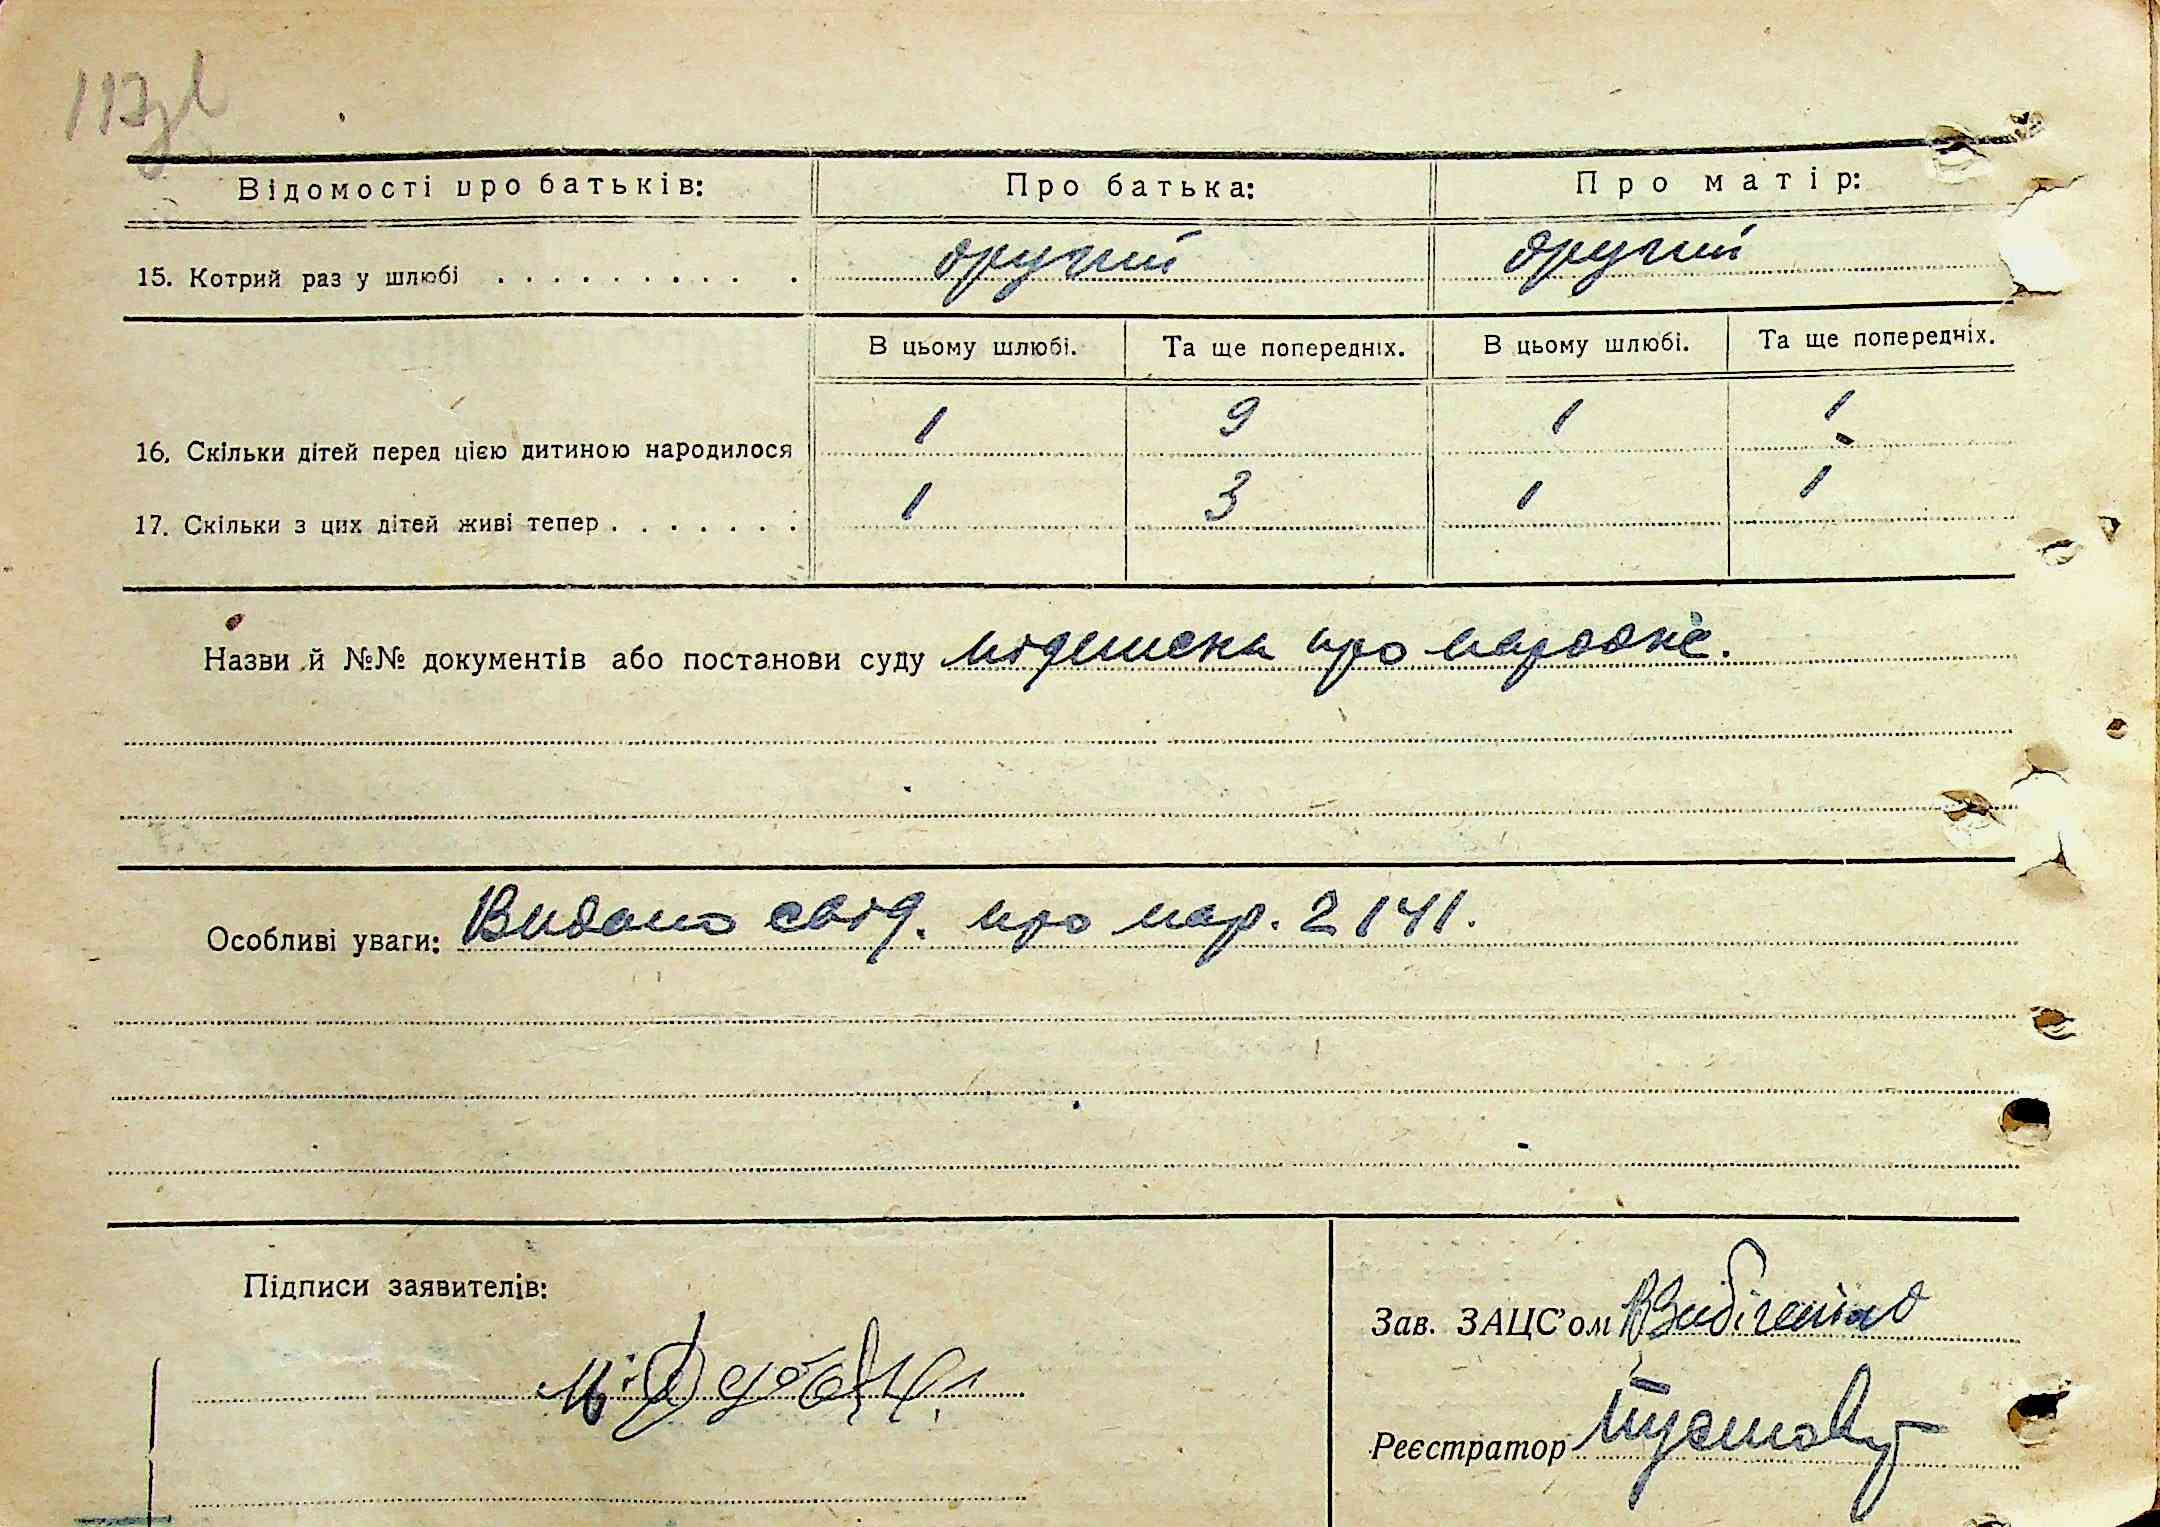 117
Відомості про батьків: Про батька: Про матір:
15. Котрий раз у шлюбі . . . . . . . . . . . другий другий
В цьому шлюбі. Та ще попередніх. В цьому шлюбі. Та ще попередніх.
16. Скільки дітей перед цією дитиною народилося 1 9 1 1
17. Скільки з цих дітей живі тепер . . . . . . . 1 3 1 1
Назви й №№ документів або постанови суду підписка про народже.
Особливі уваги: Видано свід. про нар. 2141.
Підписи заявителів:
Зав. ЗАЦС'ом
Реєстратор